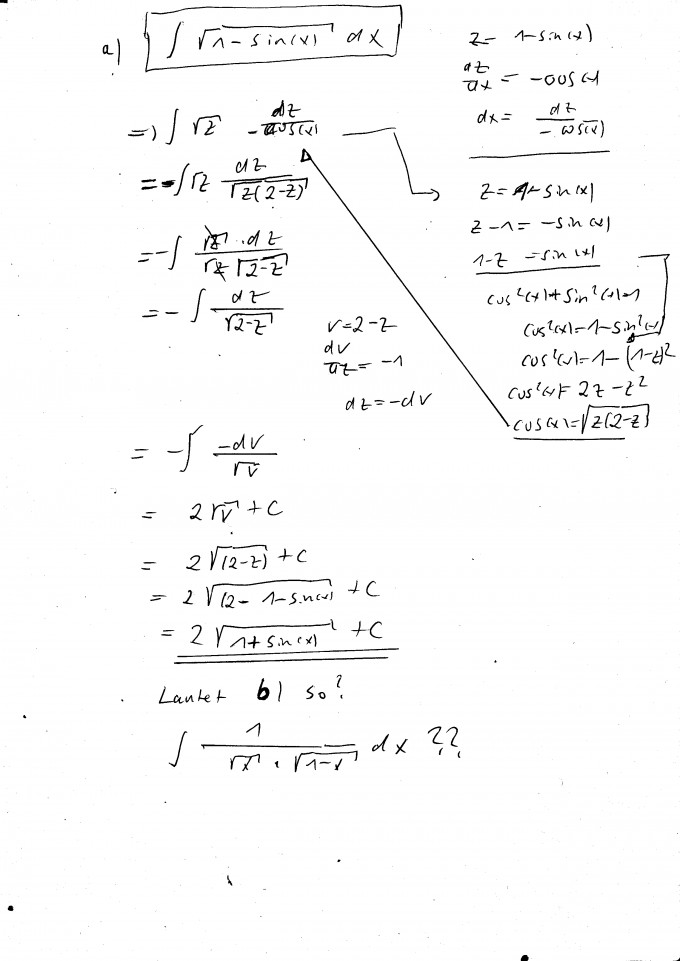 a) ∫ √(1-sin(x)) dx
z = 1-sin(x)
dz/dx = -cos(x)
dx = dz/(-cos(x))
=> ∫ √z dz/(-cos(x))
= -∫ √z dz/√(z(2-z))
= -∫ (√z · dz)/(√z √(2-z))
= -∫ dz/√(2-z)
z = 1-sin(x)
z-1 = -sin(x)
1-z = sin(x)
cos²(x)+sin²(x)=1
cos²(x)=1-sin²(x)
cos²(x)=1-(1-z)²
cos²(x)= 2z-z²
cos(x)=√(z(2-z))
v=2-z
dv/dz = -1
dz=-dv
= -∫ -dv/√v
= 2√v + C
= 2√((2-z)) + C
= 2√((2- 1-sin(x)) + C
= 2√(1+sin(x)) + C
Lautet b) so?
∫ 1/(√x · √(1-x)) dx ??